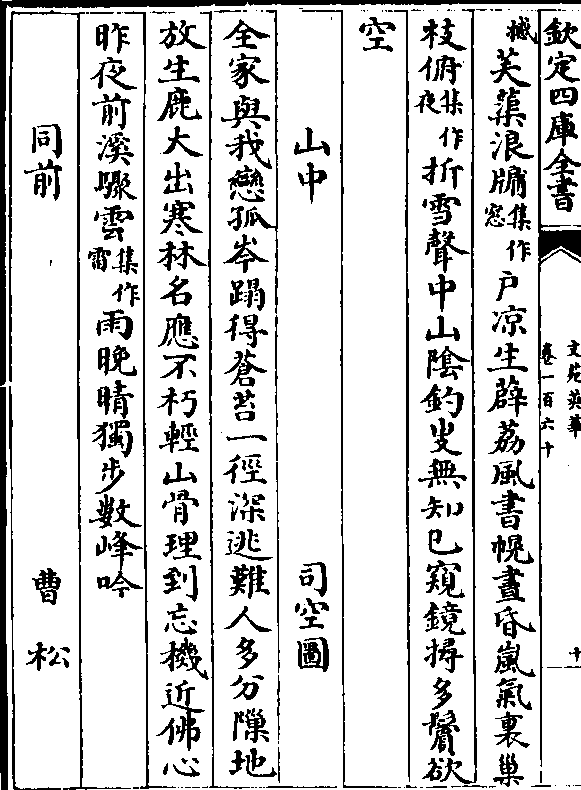 欽定四庫全書
文苑英華
卷一百六十
十
撼芙蕖浪牖集作窓户凉生薜荔風書幌晝昏嵐氣裏巢
枝俯集作夜折雪聲中山陰釣叟無知已窺鏡撏多鬢欲
空
山中 司空圖
全家與我戀孤岑蹋得蒼苔一徑深逃難人多分隟地
放生鹿大出寒林名應不朽輕山骨理到忘機近佛心
昨夜前溪驟雲集作雷雨晚晴獨步數峰吟
同前 曹松